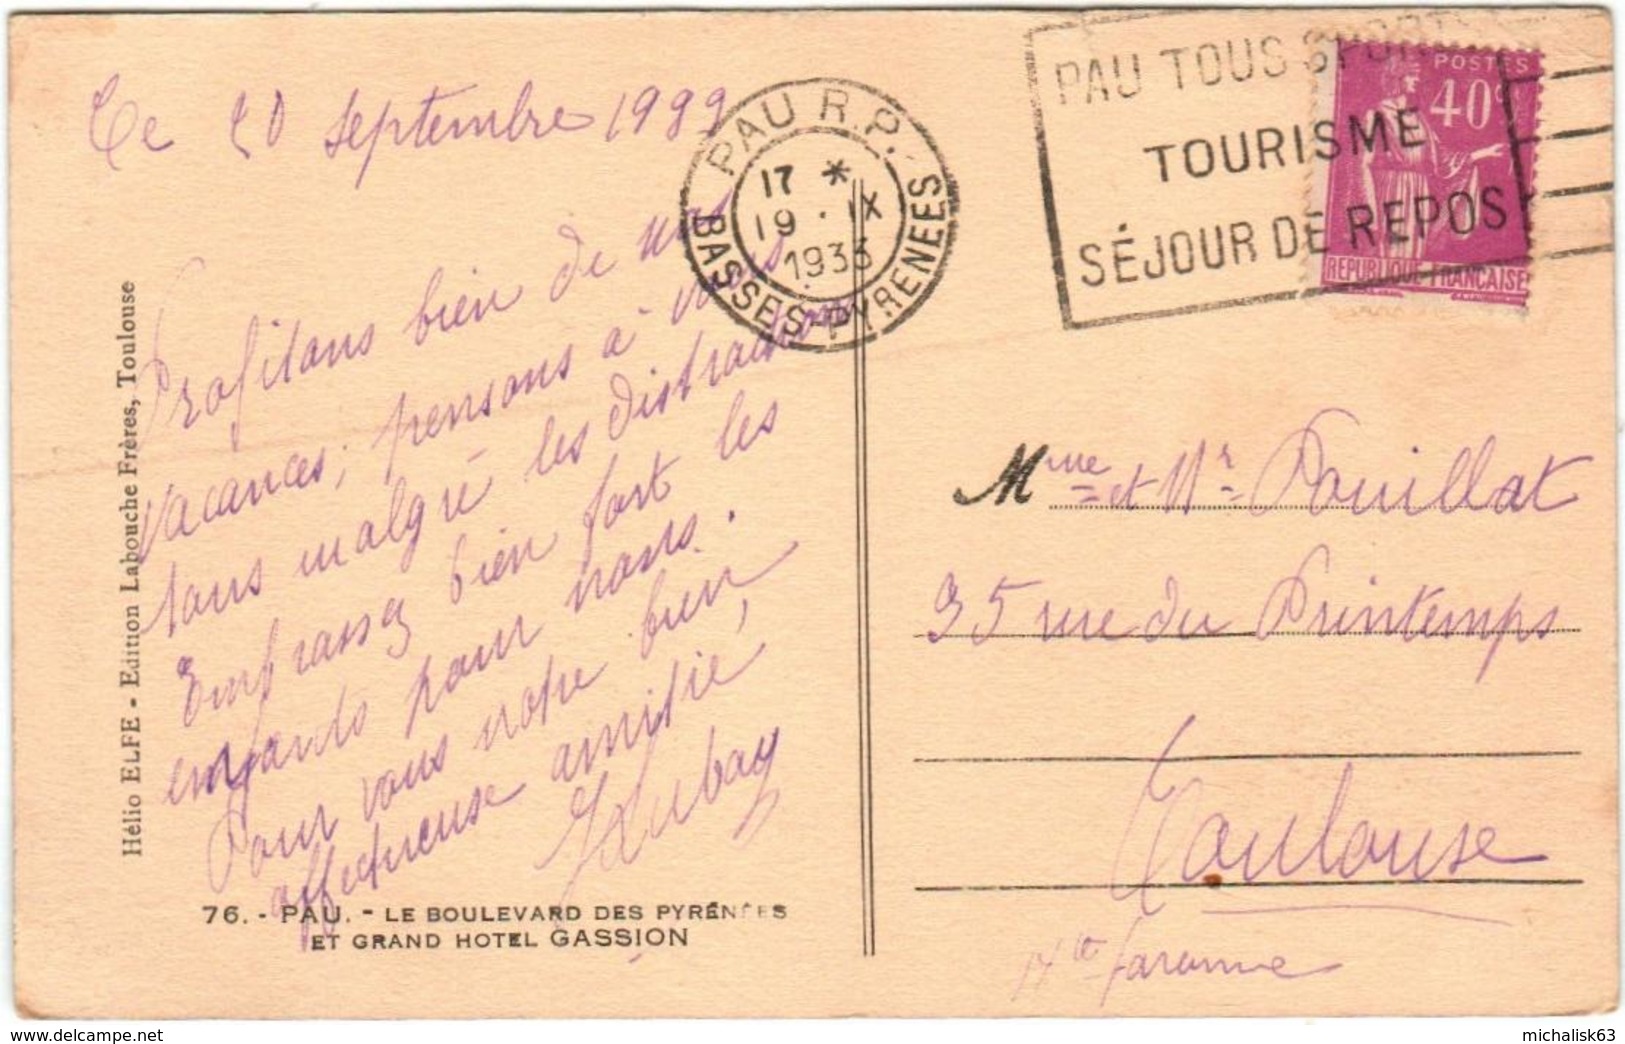 Ce 20 septembre 1933
Profitons bien de nos
vacances, pensons à vous
tous malgré les distractions
Embrassez bien fort les
enfants pour nous.
Pour vous notre bien
affectueuse amitié,
PAU R.P.
17 *
19 · IX
1933
BASSES-PYRENEES
PAU TOUS SPORTS
TOURISME
SÉJOUR DE REPOS
POSTES
40c
REPUBLIQUE FRANCAISE
Mme et Mr Pouillat
35 rue du Printemps
Toulouse
Hte Garonne
Hélio ELFE - Edition Labouche Frères, Toulouse
76. - PAU. - LE BOULEVARD DES PYRÉNÉES
ET GRAND HOTEL GASSION
michalisk63